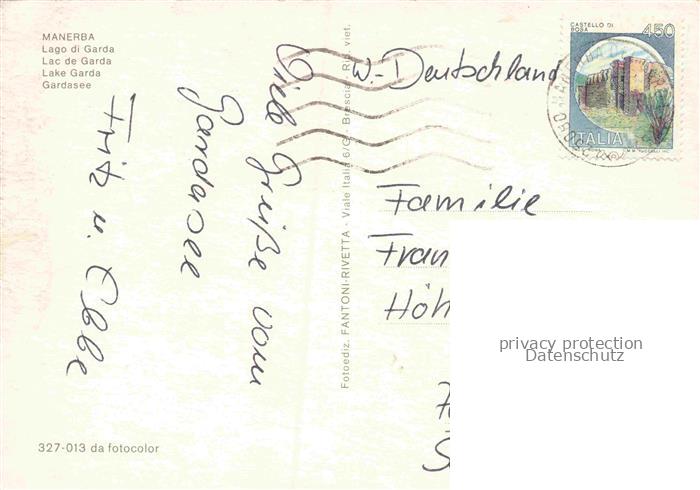 MANERBA
Lago di Garda
Lac de Garda
Lake Garda
Gardasee
Viele Grüße vom
Gardasee
Fritz u. Elbe
327-013 da fotocolor
Fotoediz. FANTONI-RIVETTA - Viale Italia 6/G - Brescia - Rip. viet.
W.-Deutschland
CASTELLO DI
ROSA
450
ITALIA
Familie
privacy protection
Datenschutz